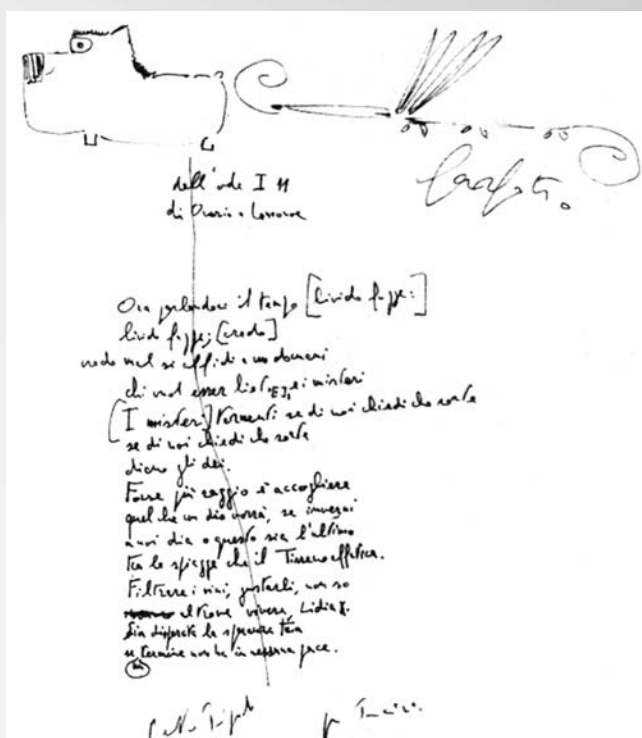 dell'ode I 11
di Orazio a
Ora parlandoci il tempo [livido fugge:]
livido fugge; [credo]
credo mal si affidi a un domani
chi vuol esser lieto, E i misteri
[I misteri] tormenti se di noi chiedi che sorte
se di noi chiedi che sorte
diano gli dei.
Forse più saggio è accogliere
quel che un dio vorrà, se inverni
a noi dia o questo sia l'ultimo
tra le spiagge che il Tirreno affatica.
Filtrare i vini, gustarli, non so
altrove vivere, Lidia
Sia disperata la speranza tua
se termine non ha in nessuna pace.